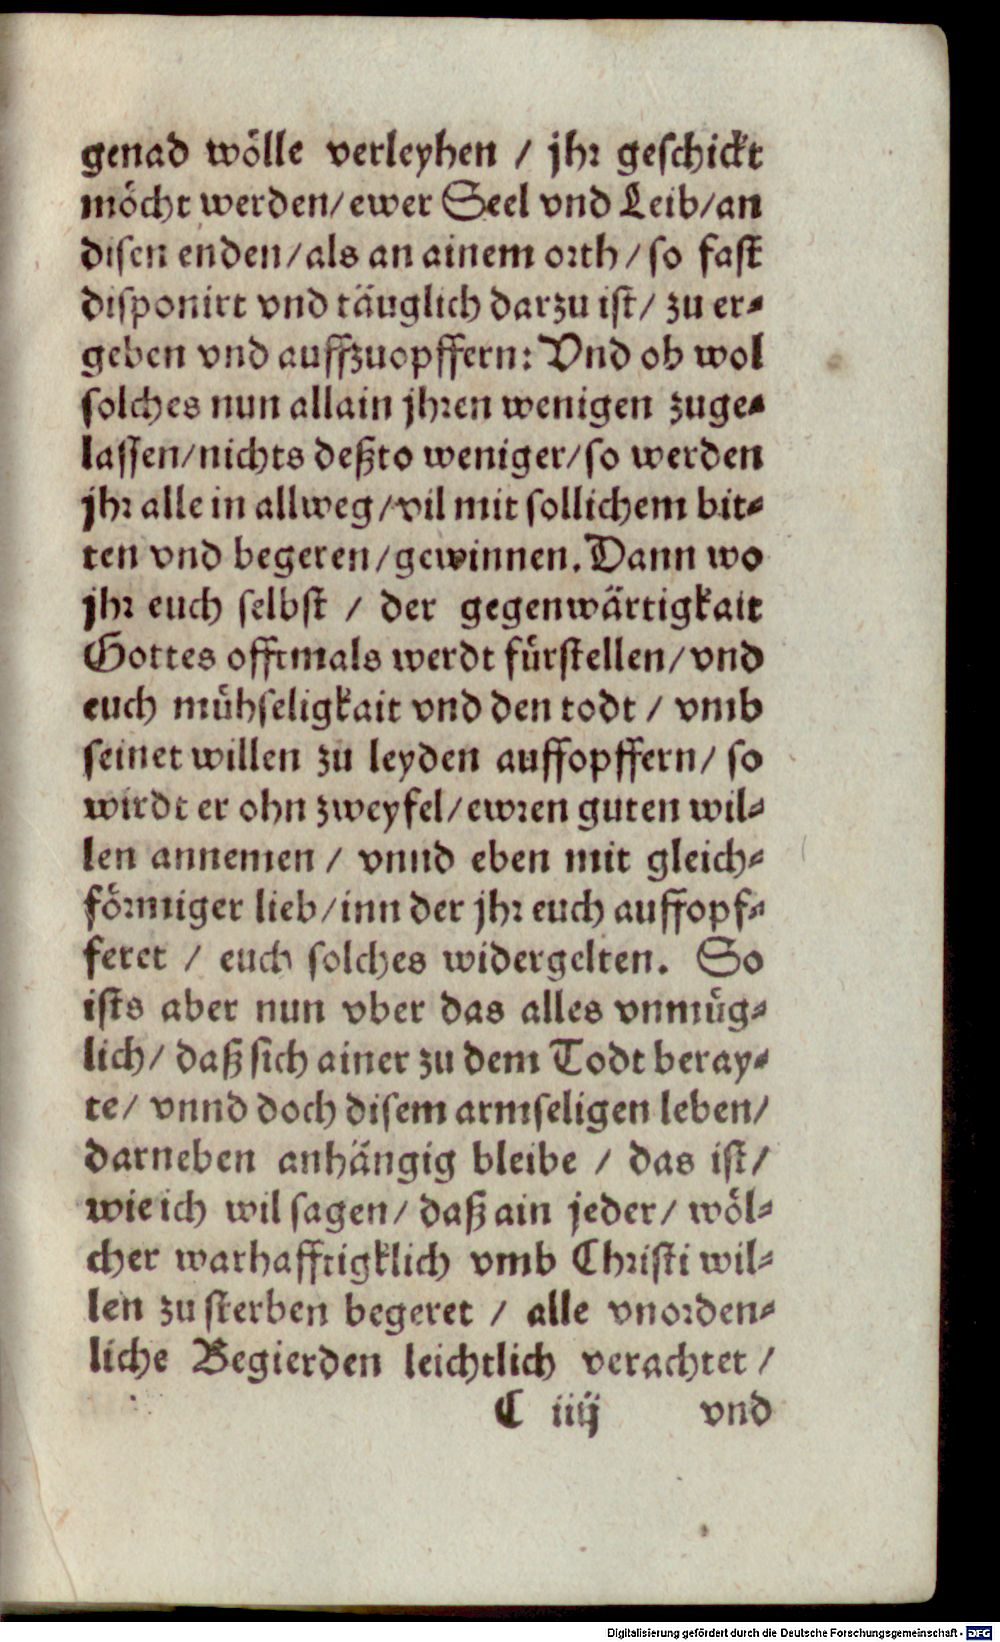 genad wölle verleyhen / jhr geschickt
möcht werden/ ewer Seel vnd Leib/ an
disen enden/ als an ainem orth / so fast
disponirt vnd täuglich darzu ist/ zu er-
geben vnd auffzuopffern: Vnd ob wol
solches nun allain jhren wenigen zuge-
lassen/ nichts deßto weniger/ so werden
jhr alle in allweg / vil mit sollichem bit-
ten vnd begeren / gewinnen. Dann wo
jhr euch selbst / der gegenwärtigkait
Gottes offtmals werdt fürstellen/ vnd
euch mühseligkait vnd den todt / vmb
seinet willen zu leyden auffopffern/ so
wirdt er ohn zweyfel/ ewren guten wil-
len annemen / vnnd eben mit gleich-
förmiger lieb/ inn der jhr euch auffopf-
feret / euch solches widergelten. So
ists aber nun vber das alles vnmüg-
lich/ daß sich ainer zu dem Todt beray-
te/ vnnd doch disem armseligen leben/
darneben anhängig bleibe / das ist/
wie ich wil sagen/ daß ain jeder/ wöl-
cher warhafftigklich vmb Christi wil-
len zu sterben begeret / alle vnorden-
liche Begierden leichtlich verachtet /
C iiij vnd
Digitalisierung gefördert durch die Deutsche Forschungsgemeinschaft - DFG